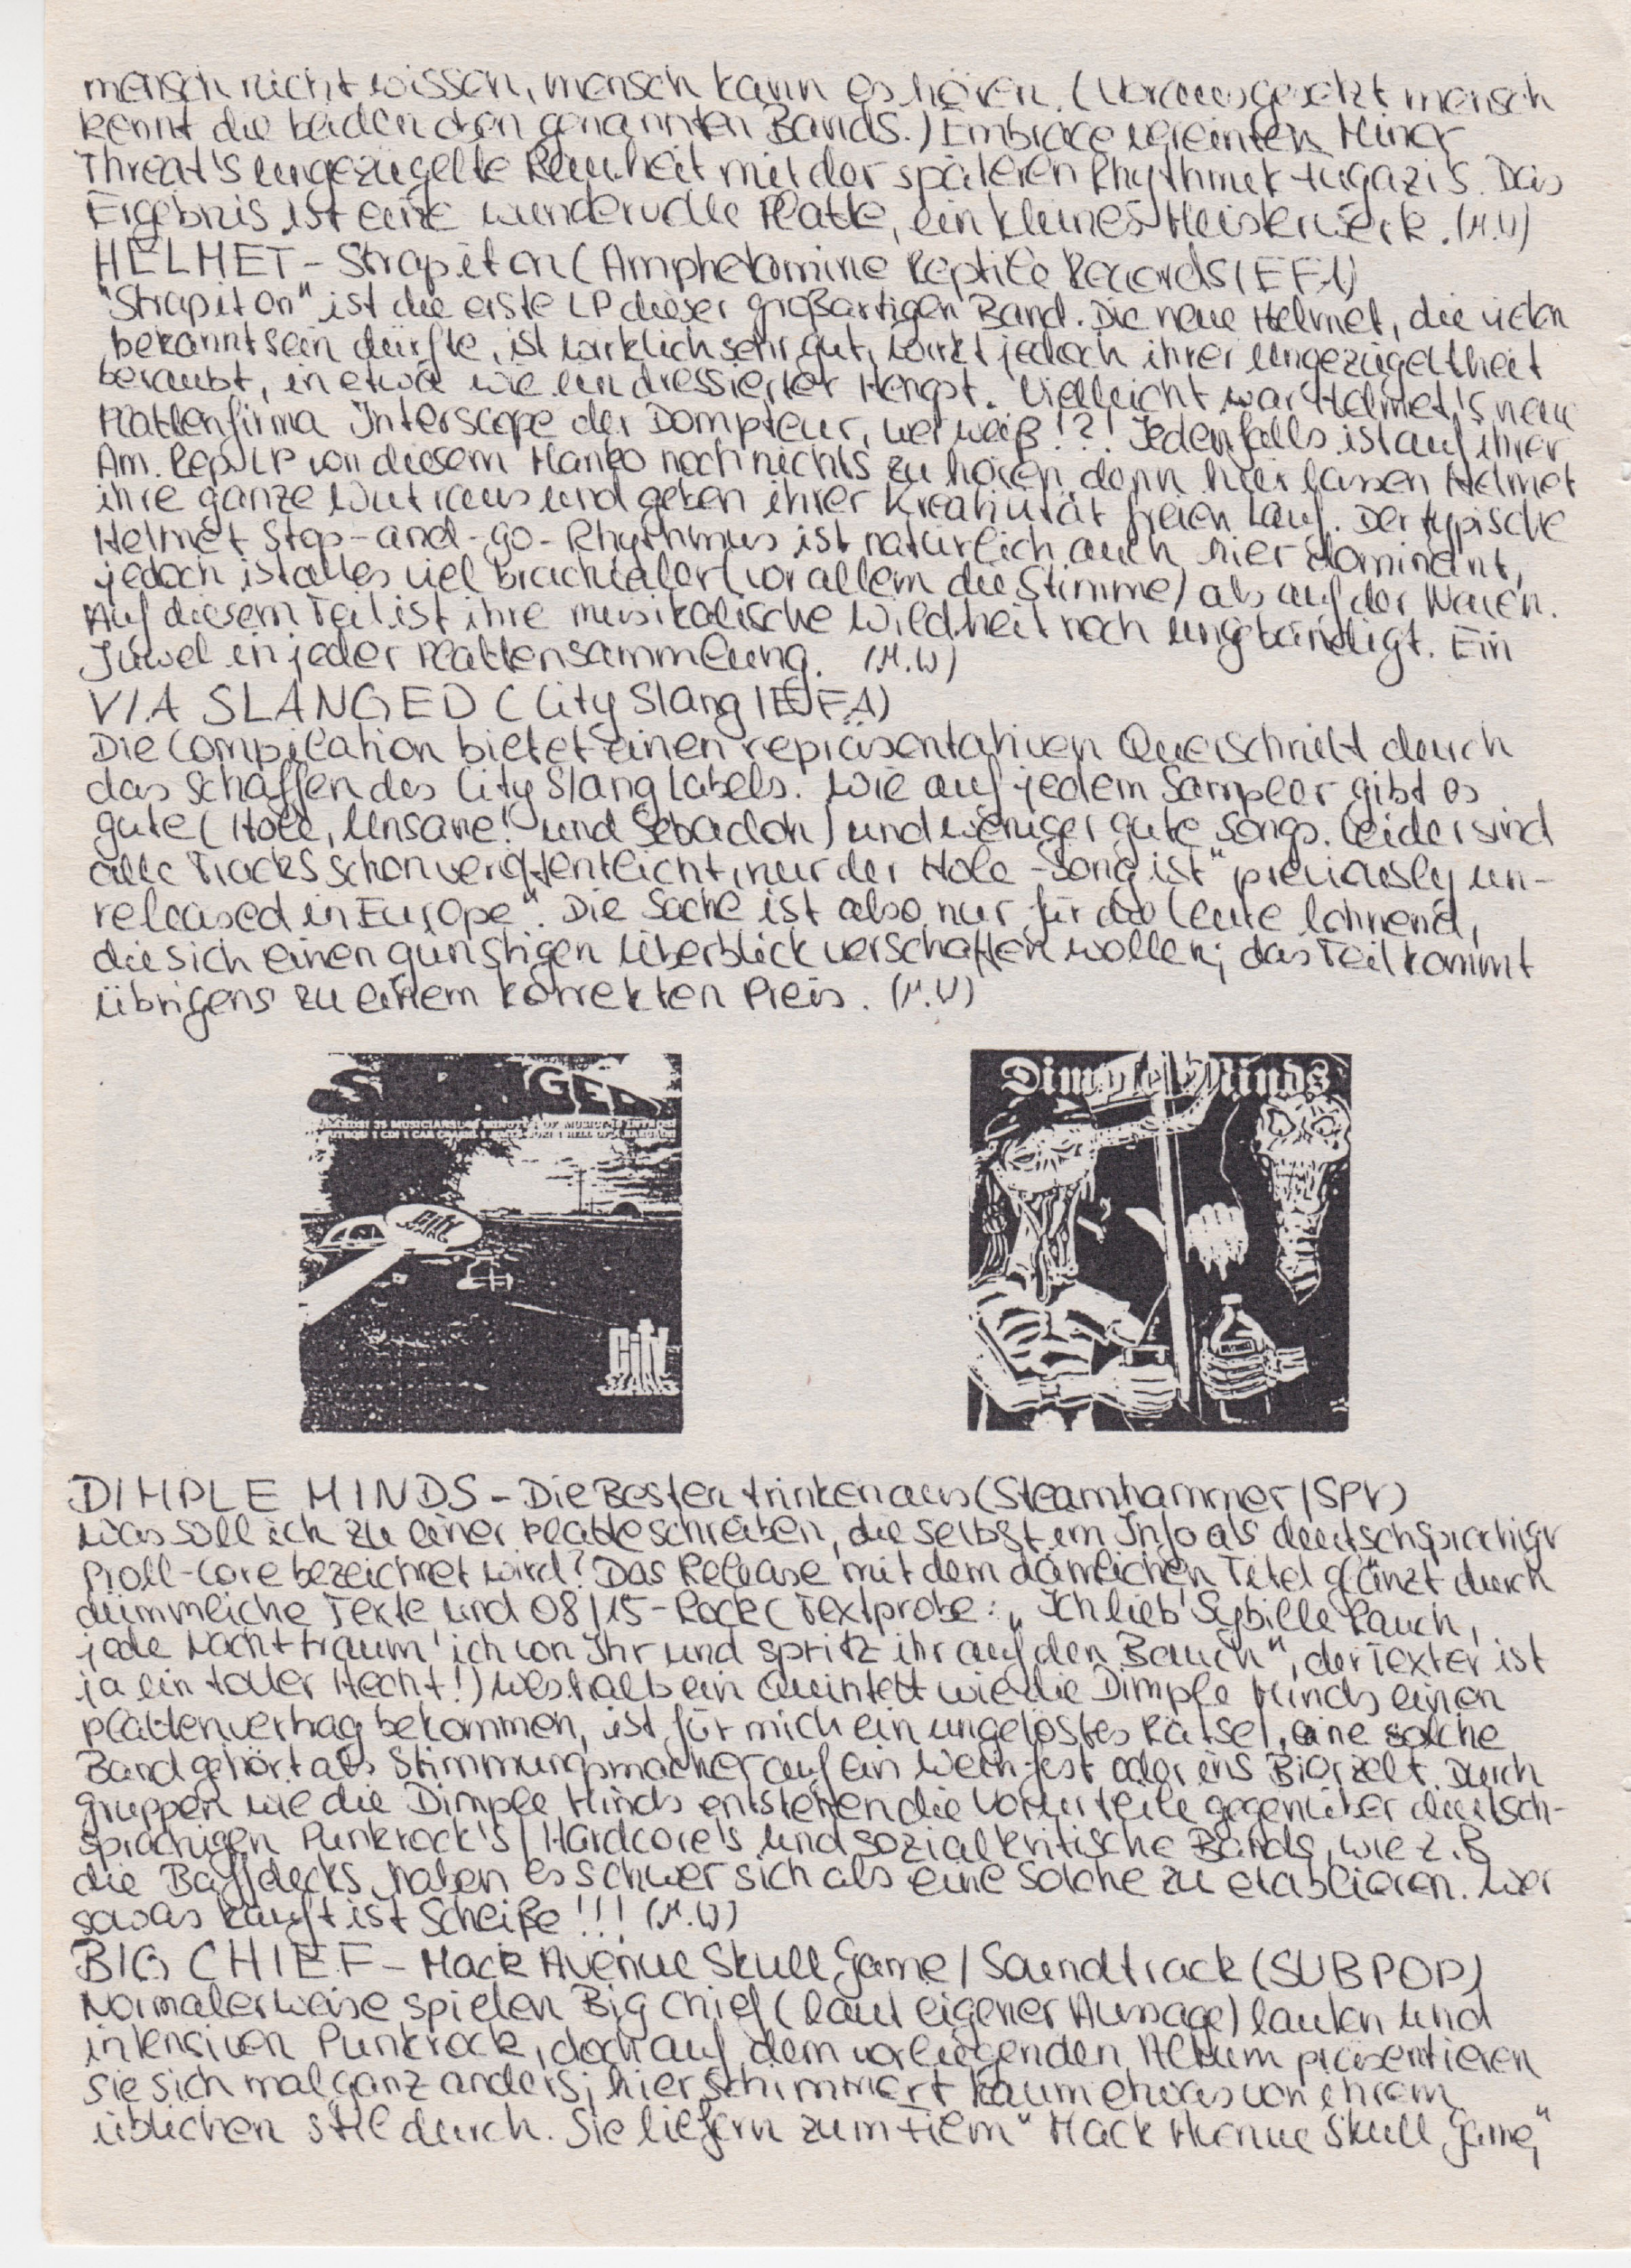 mensch nicht wissen, mensch kann es hören. (Vorausgesetzt mensch
kennt die beiden oben genannten Bands.) Embrace vereinten Minor
Threat's ungezügelte Rauheit mit der späteren Rhythmik Fugazi's. Das
Ergebnis ist eine wundervolle Platte, ein kleines Meisterwerk. (M.W)
HELMET - Strap it on (Amphetamine Reptile Records/EFA)
"Strap it on" ist die erste LP dieser großartigen Band. Die neue Helmet, die vielen
bekannt sein dürfte, ist wirklich sehr gut, wirkt jedoch ihrer Ungezügeltheit
beraubt, in etwa wie ein dressierter Hengst. Vielleicht war Helmet's neue
Plattenfirma Interscope der Dompteur, wer weiß!?! Jedenfalls ist auf ihrer
Am. Rep. LP von diesem Manko noch nichts zu hören, denn hier lassen Helmet
ihre ganze Wut raus und geben ihrer Kreativität freien Lauf. Der typische
Helmet Stop-and-go-Rhythmus ist natürlich auch hier dominant,
jedoch ist alles viel brachialer (vor allem die Stimme) als auf der Neuen.
Auf diesem Teil ist ihre musikalische Wildheit noch ungebändigt. Ein
Juwel in jeder Plattensammlung. (M.W)
V/A SLANGED (City Slang/EFA)
Die Compilation bietet einen repräsentativen Querschnitt durch
das Schaffen des City Slang Labels. Wie auf jedem Sampler gibt es
gute (Hole, Unsane! und Sebadoh) und weniger gute Songs. Leider sind
alle Tracks schon veröffentlicht, nur der Hole-Song ist "previously un-
released in Europe". Die Sache ist also nur für die Leute lohnend,
die sich einen günstigen Überblick verschaffen wollen; das Teil kommt
übrigens zu einem korrekten Preis. (M.W)
Dimple Minds
City
SLANG
City
SLANG
DIMPLE MINDS - Die Besten trinken aus (Steamhammer/SPV)
Was soll ich zu einer Platte schreiben, die selbst im Info als deutschsprachiger
Proll-Core bezeichnet wird? Das Release mit dem dämlichen Titel glänzt durch
dümmliche Texte und 08/15-Rock (Textprobe: „Ich lieb' Sybille Rauch,
jede Nacht träum' ich von Ihr und spritz ihr auf den Bauch", der Texter ist
ja ein toller Hecht!) Weshalb ein Quintett wie die Dimple Minds einen
Plattenvertrag bekommen, ist für mich ein ungelöstes Rätsel, eine solche
Band gehört als Stimmungsmacher auf ein Weinfest oder ins Bierzelt. Durch
Gruppen wie die Dimple Minds entstehen die Vorurteile gegenüber deutsch-
sprachigen Punkrock's/Hardcore's und sozialkritische Bands, wie z.B
die Baffdecks, haben es schwer sich als eine solche zu etablieren. Wer
sowas kauft ist Scheiße!!! (M.W)
BIG CHIEF - Mack Avenue Skull Game/Soundtrack (SUB POP)
Normalerweise spielen Big Chief (laut eigener Aussage) lauten und
intensiven Punkrock, doch auf dem vorliegenden Album präsentieren
sie sich mal ganz anders; hier schimmert kaum etwas von ihrem
üblichen Stil durch. Sie liefern zum Film "Mack Avenue Skull Game,"